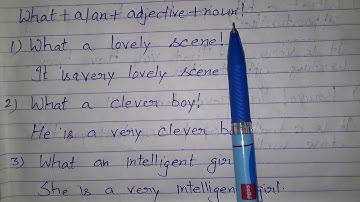 What + a/an + adjective + noun!
1) What a lovely scene!
It is a very lovely scene
2) What a clever boy!
He is a very clever b
3) What an intelligent gir
She is a very intelligent girl.
cello